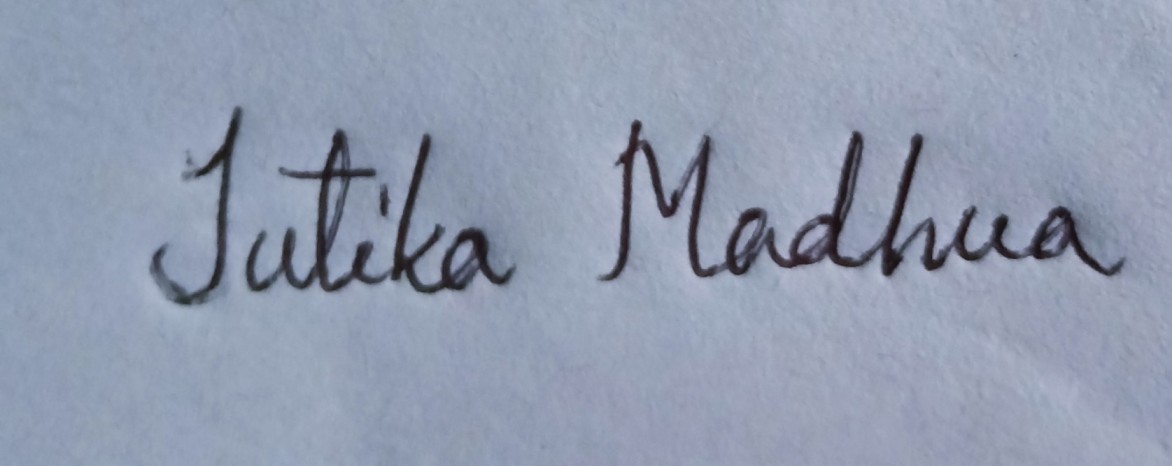 Jutika Madhua